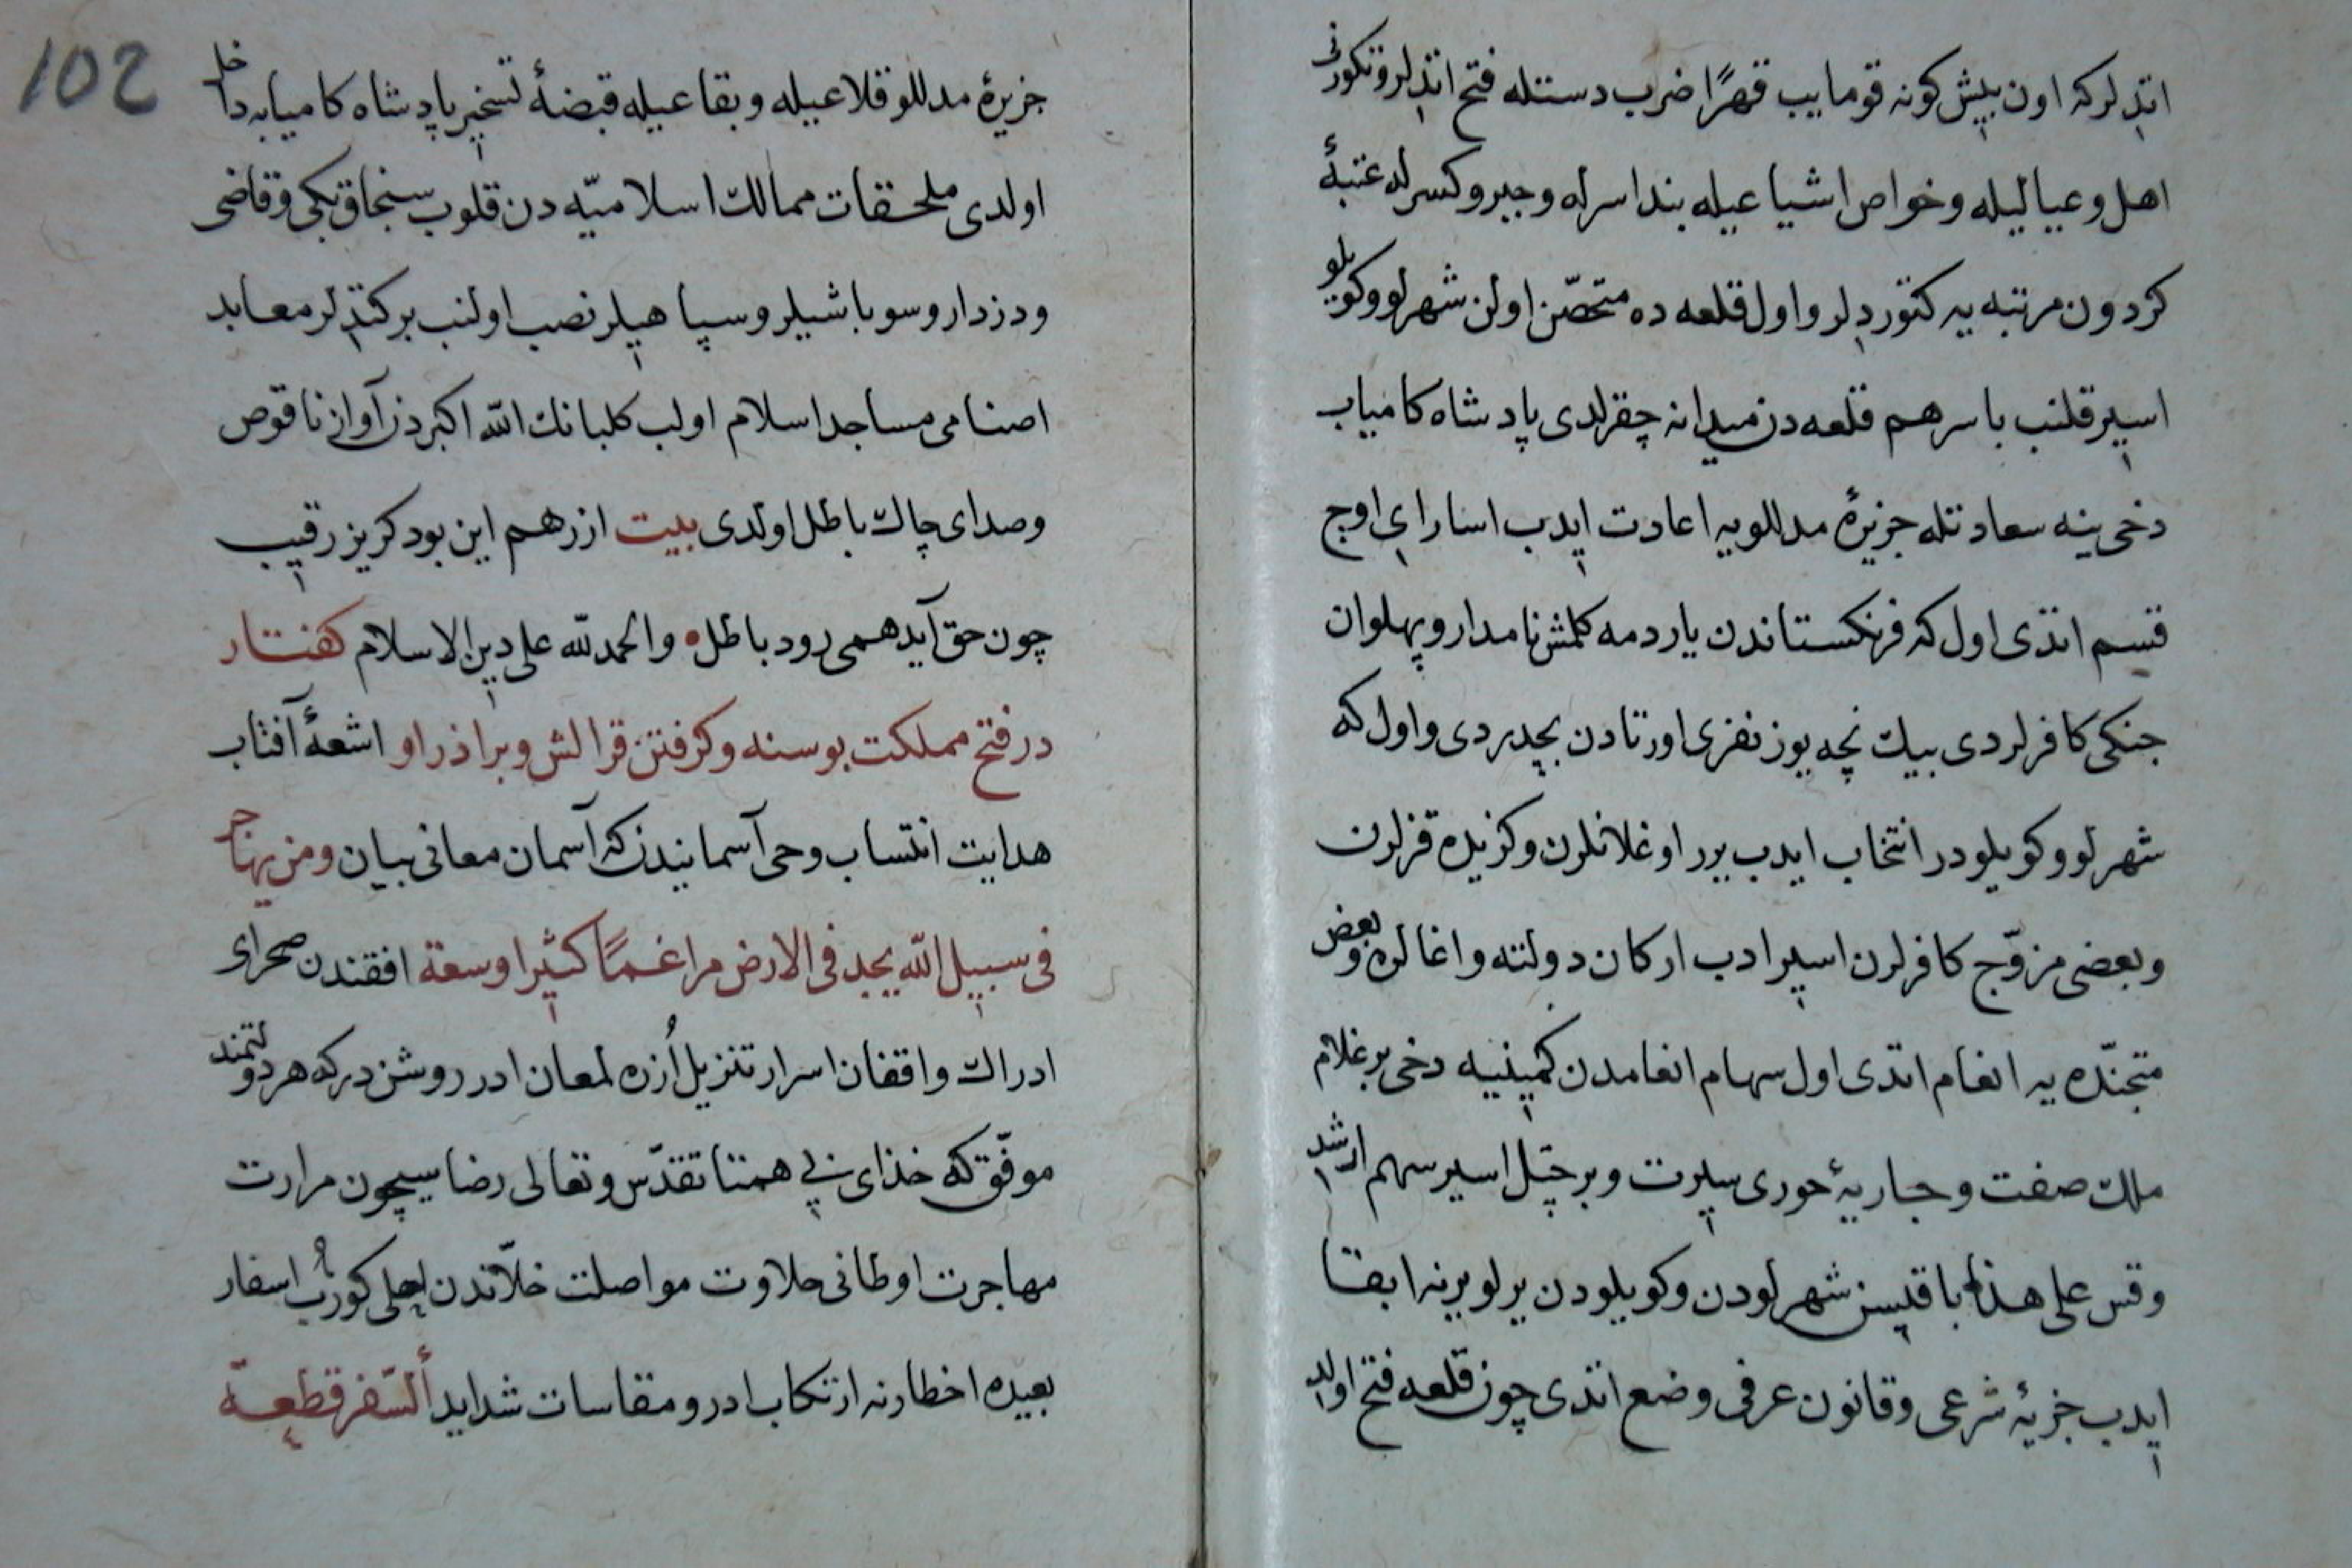 اتدلر كه اون بيش كونه قومايب قهرًا ضرب دستله فتح اتدلر و تكورنى
اهل و عياليله و خواص اشياعيله بند اسرله و جبر و كسرله عتبۀ
كردون مرتبه يه كتوردلر و اول قلعه ده متحصّن اولن شهرلو و كويلو
اسير قلنب باسرهم قلعه دن ميدانه چقرلدى پادشاه كامياب
دخى ينه سعادتله جزيرۀ مدللويه اعادت ايدب اساراى اوج
قسم اتدى اول كه فرنكستاندن ياردمه كلمش نامدار و پهلوان
جنكى كافرلردى بيك نچه يوز نفرى اورتادن بچدردى و اول كه
شهرلو و كويلودر انتخاب ايدب يرر اوغلانلرن و كزيده قزلرن
و بعضى مزوّج كافرلرن اسير ادب اركان دولته و اغالره و بعض
متجنّده يه انعام اتدى اول سهام انعامدن كمينيه دخى بر غلام
ملك صفت و جاريۀ حورى سيرت و بر چتل اسير سهم ارشدى
و قس على هذا باقيسن شهرلودن و كويلودن يرلو يرنه ابقا
ايدب جزيۀ شرعى و قانون عرفى وضع اتدى چون قلعه فتح اولدى
102
جزيرۀ مدللو قلاعيله و بقاعيله قبضۀ تسخير پادشاه كاميابه داخل
اولدى ملحقات ممالك اسلاميّه دن قلوب سنجاق بكى و قاضى
و دزدار و سوباشيلر و سپاهيلر نصب اولنب بركتدلر معابد
اصنامى مساجد اسلام اولب كلبانك الله اكبردن آواز ناقوص
و صداى چاك باطل اولدى بيت از رهم اين بود كريز رقيب
چون حق آيد همى رود باطل ه والحمد لله على دين الاسلام كفتار
در فتح مملكت بوسنه و كرفتن قرالش و براذر او اشعۀ آفتاب
هدايت انتساب وحى آسمانيدن كه آسمان معانى بيان ومن يهاجر
فى سبيل الله يجد فى الارض مراغمًا كثيرا وسعة افقندن صحراى
ادراك واقفان اسرار تنزيل اُزره لمعان ادر روشن دركه هر دولتمند
موفّق كه خذاى بى همتا تقدّس و تعالى رضاسيچون مرارت
مهاجرت اوطانى حلاوت مواصلت خلّاندن احلى كورُب اسفار
بعيده اخطارنه ارتكاب ادر و مقاسات شدايد ألسّفر قطعة